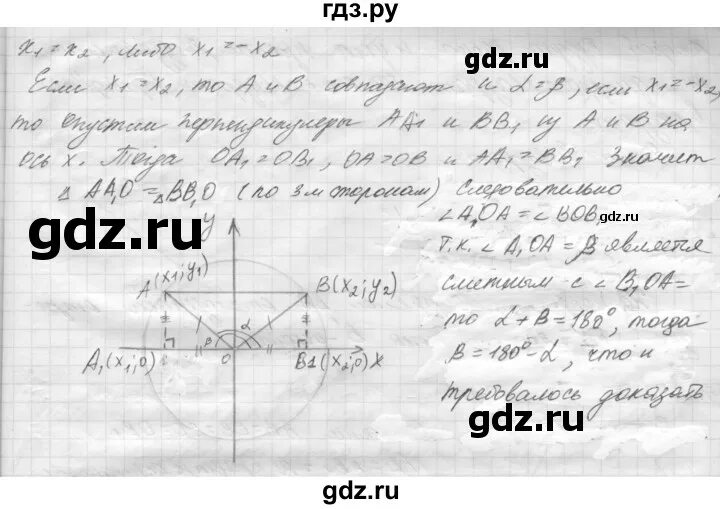 гдз.ру
x₁=x₂, либо x₁=-x₂
Если x₁=x₂, то A и B совпадают и α=β, если x₁=-x₂,
то опустим перпендикуляры AA₁ и BB₁ из A и B на
ось x. Тогда OA₁=OB₁, OA=OB и AA₁=BB₁ Значит
△ AA₁O = △BB₁O (по 3м сторонам) Следовательно
∠A₁OA = ∠BOB₁
gdz.ru
т.к. ∠A₁OA = β является
смежным с ∠B₁OA=
то α+β=180°, тогда
β=180°-α, что и
требовалось доказать
y
A(x₁;y₁)
B(x₂;y₂)
β
α
A₁(x₁;0)
O
B1(x₂;0)
X
gdz.ru
gdz.ru
gdz.ru
gdz.ru
gdz.ru
gdz.ru